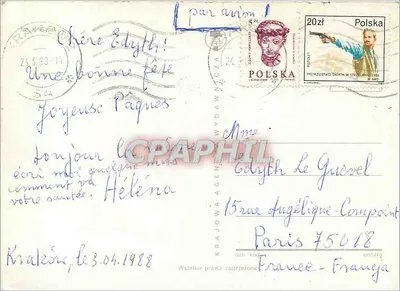 par avion
20zł Polska
POLSKA
Chère Edyth!
Une bonne fête
Joyeuse Pâques
bonjour la
écri moi quelque
comment va
votre santée.
Héléna
Kraków, le 3.04.1988
CPAPHIL
KRAJOWA AGENCJA WYDAWNICZA
Wszelkie prawa zastrzeżone
Mme
Edyth Le Guevel
15 rue Angélique-Compoint
Paris 75018
France - Francja